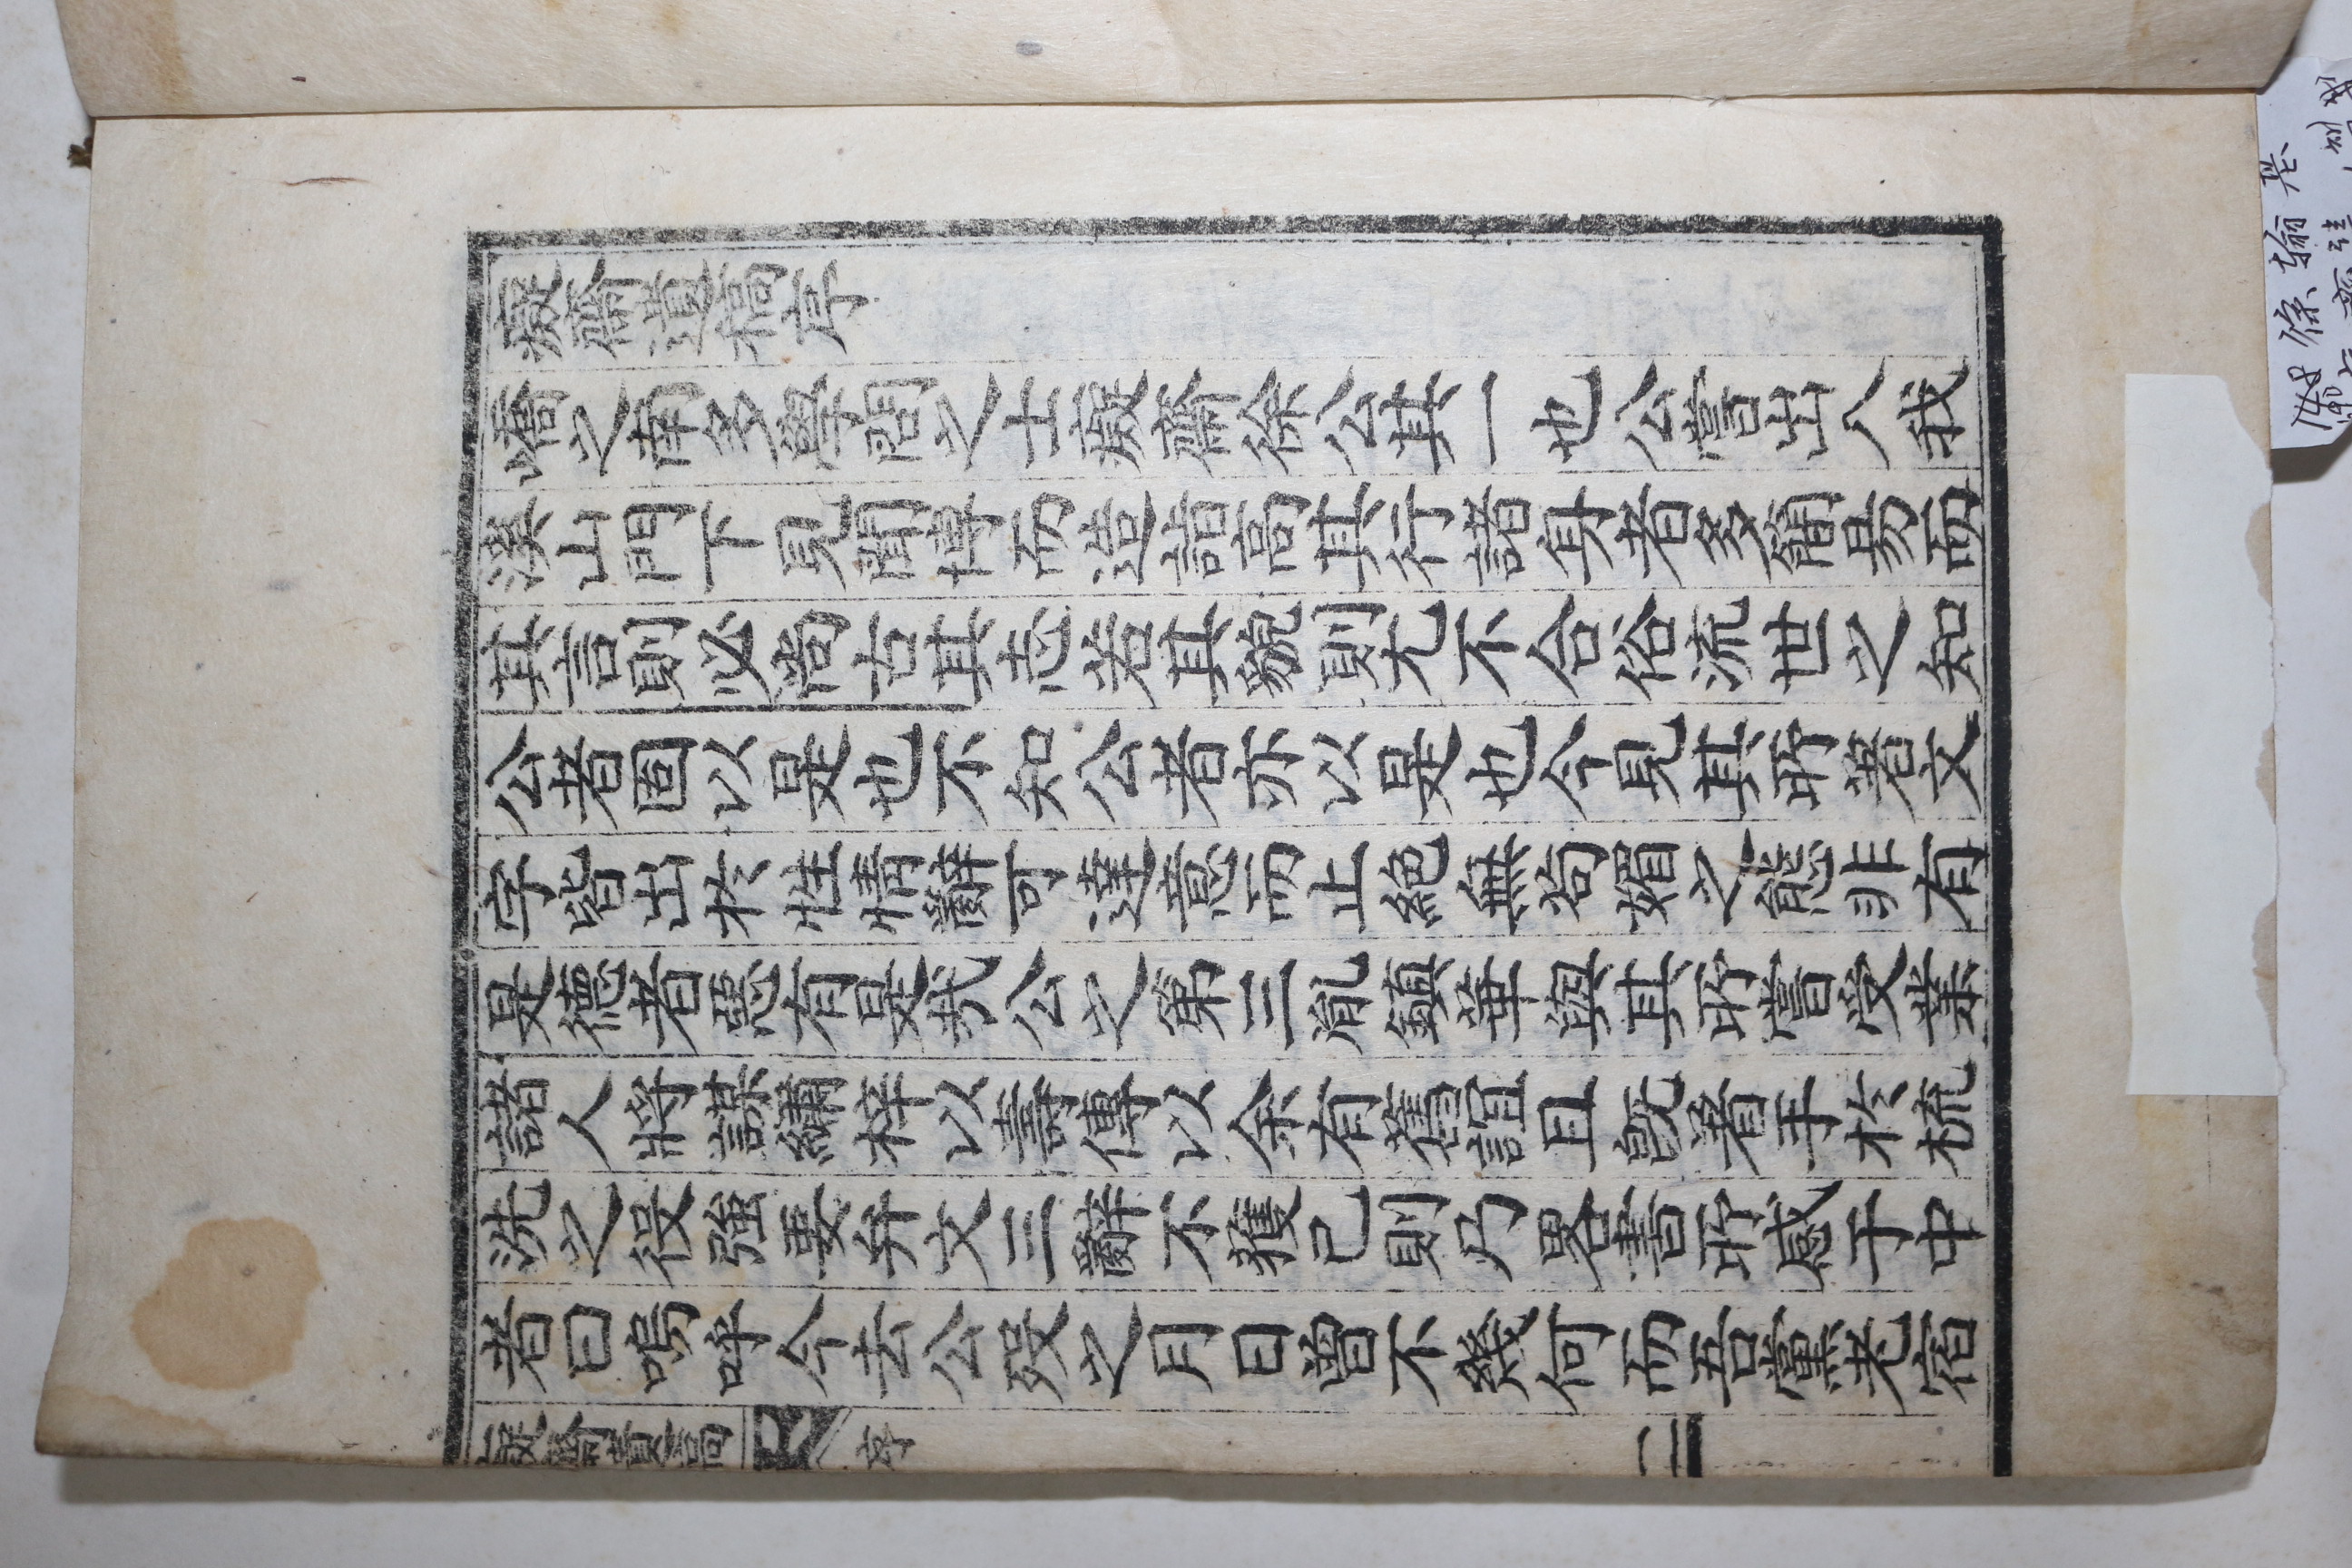 癡齋遺稿序
嶠之南多學問之士癡齋徐公其一也公嘗出入我
溪山門下見聞博而造詣高其行諸身者多簡易而
其言則必尚古其志若其貌則尤不合俗流世之知
公者固以是也不知公者亦以是也今見其所著文
字皆出於性情辭可達意而止絶無苟媚之態非有
是德者惡有是哉公之第三胤鎮華與其所嘗受業
諸人將謀繡梓以壽傳以余有舊誼且旣著手於梳
洗之役強要弁文三辭不獲已則乃畧書所感于中
者曰嗚呼今去公歿之月日曾不幾何而吾黨老宿
癡齋遺稿 序 一
148 徐翰